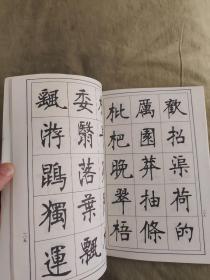 歡招渠荷的
歷園莽抽條
枇杷晚翠梧
委翳落葉飄
颻游鵾獨運